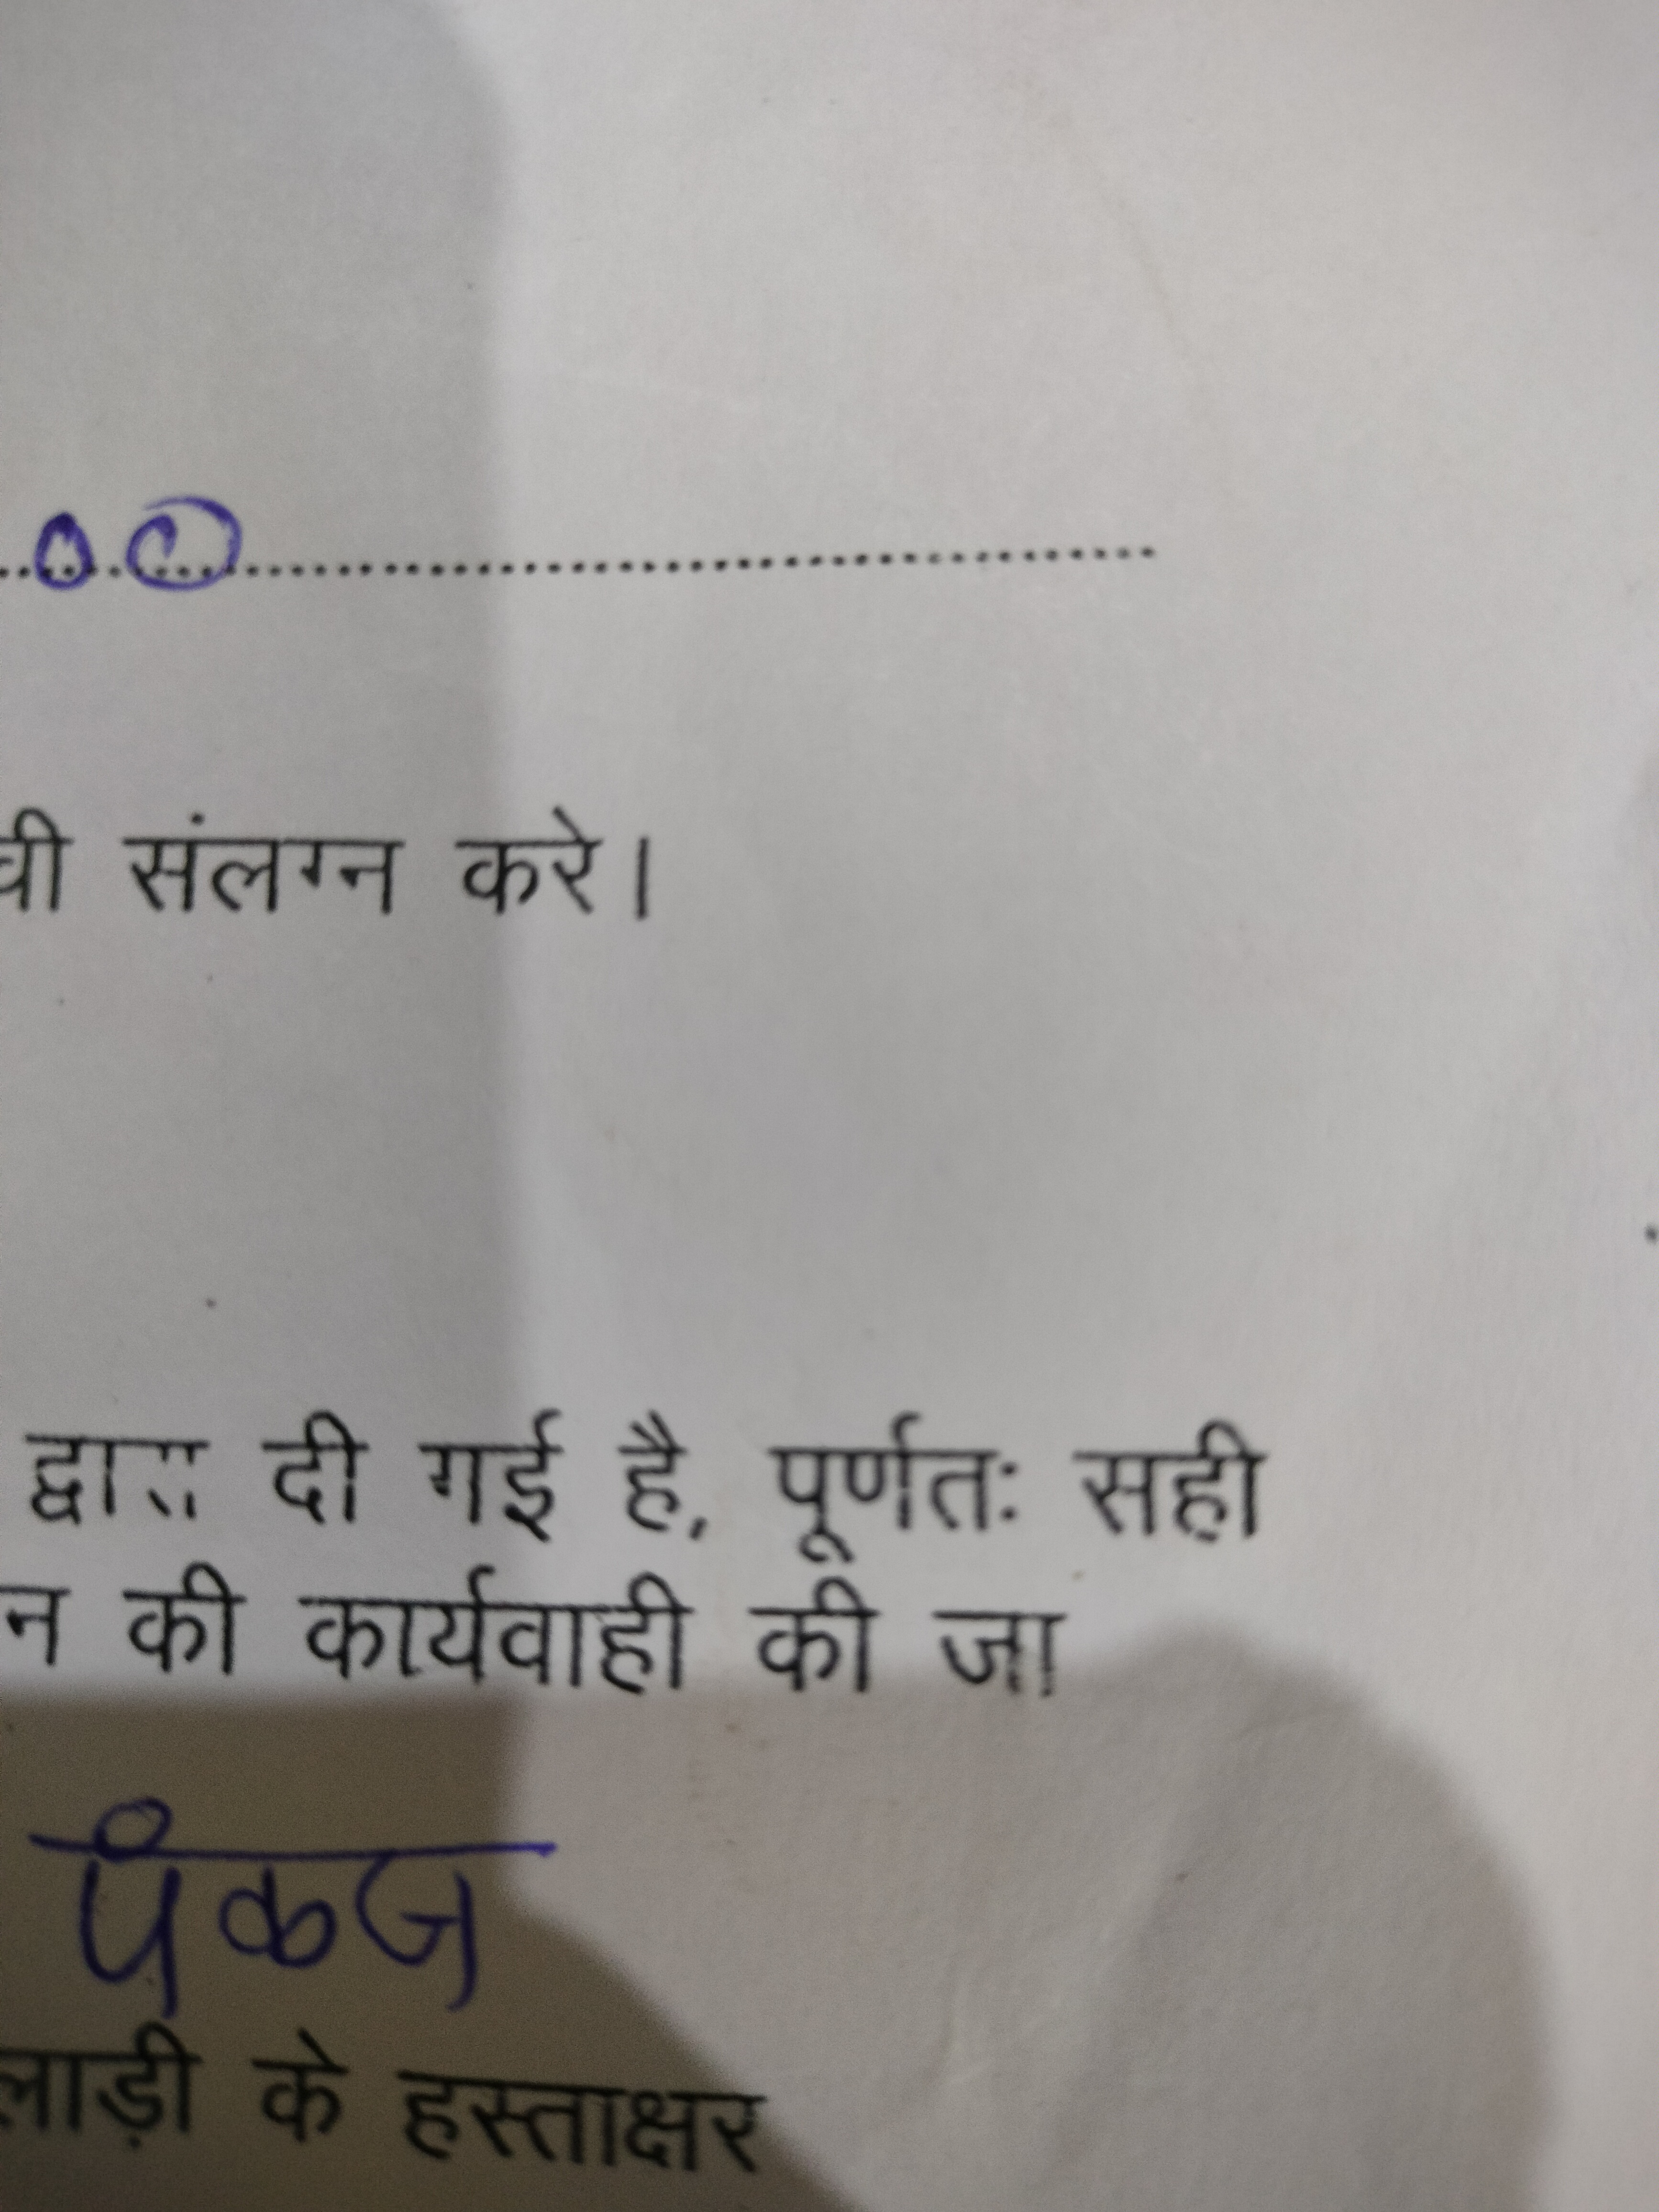 00
संलग्न करे।
द्वारा दी गई है, पूर्णतः सही
न की कार्यवाही की जा
पंकज
लाड़ी के हस्ताक्षर